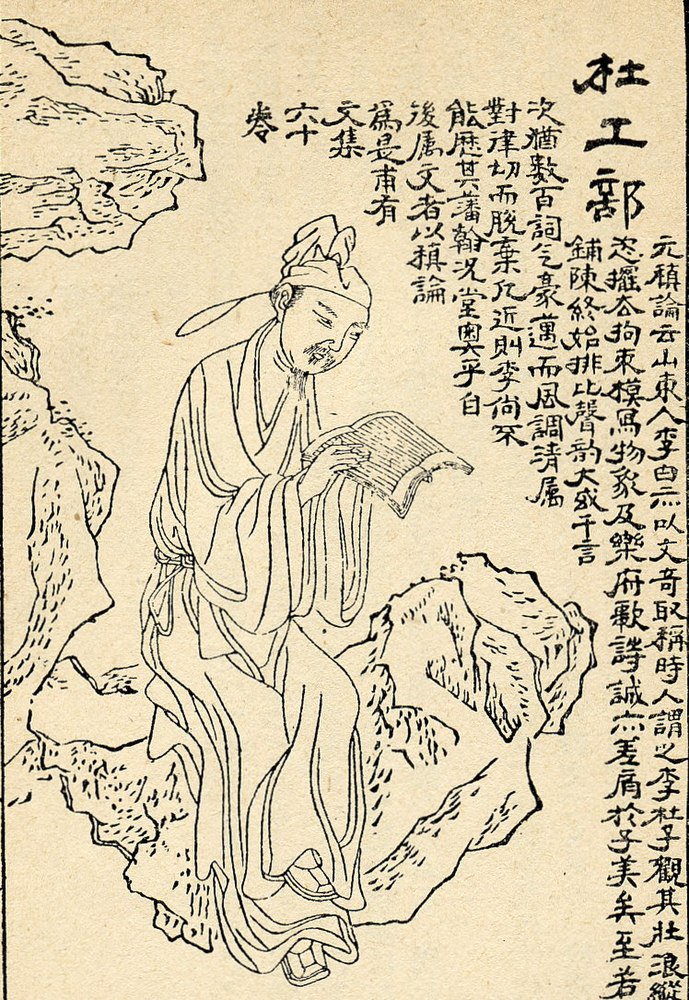 杜工部
元稹論云山東人李白亦以文奇取稱時人謂之李杜予觀其壯浪縱
恣擺去拘束模寫物象及樂府歌詩誠亦差肩於子美矣至若
鋪陳終始排比聲韵大或千言
次猶數百詞气豪邁而風調清属
對律切而脫棄凡近則李尚不
能歷其藩翰況堂奧乎自
後属文者以稹論
為是甫有
文集
六十
卷